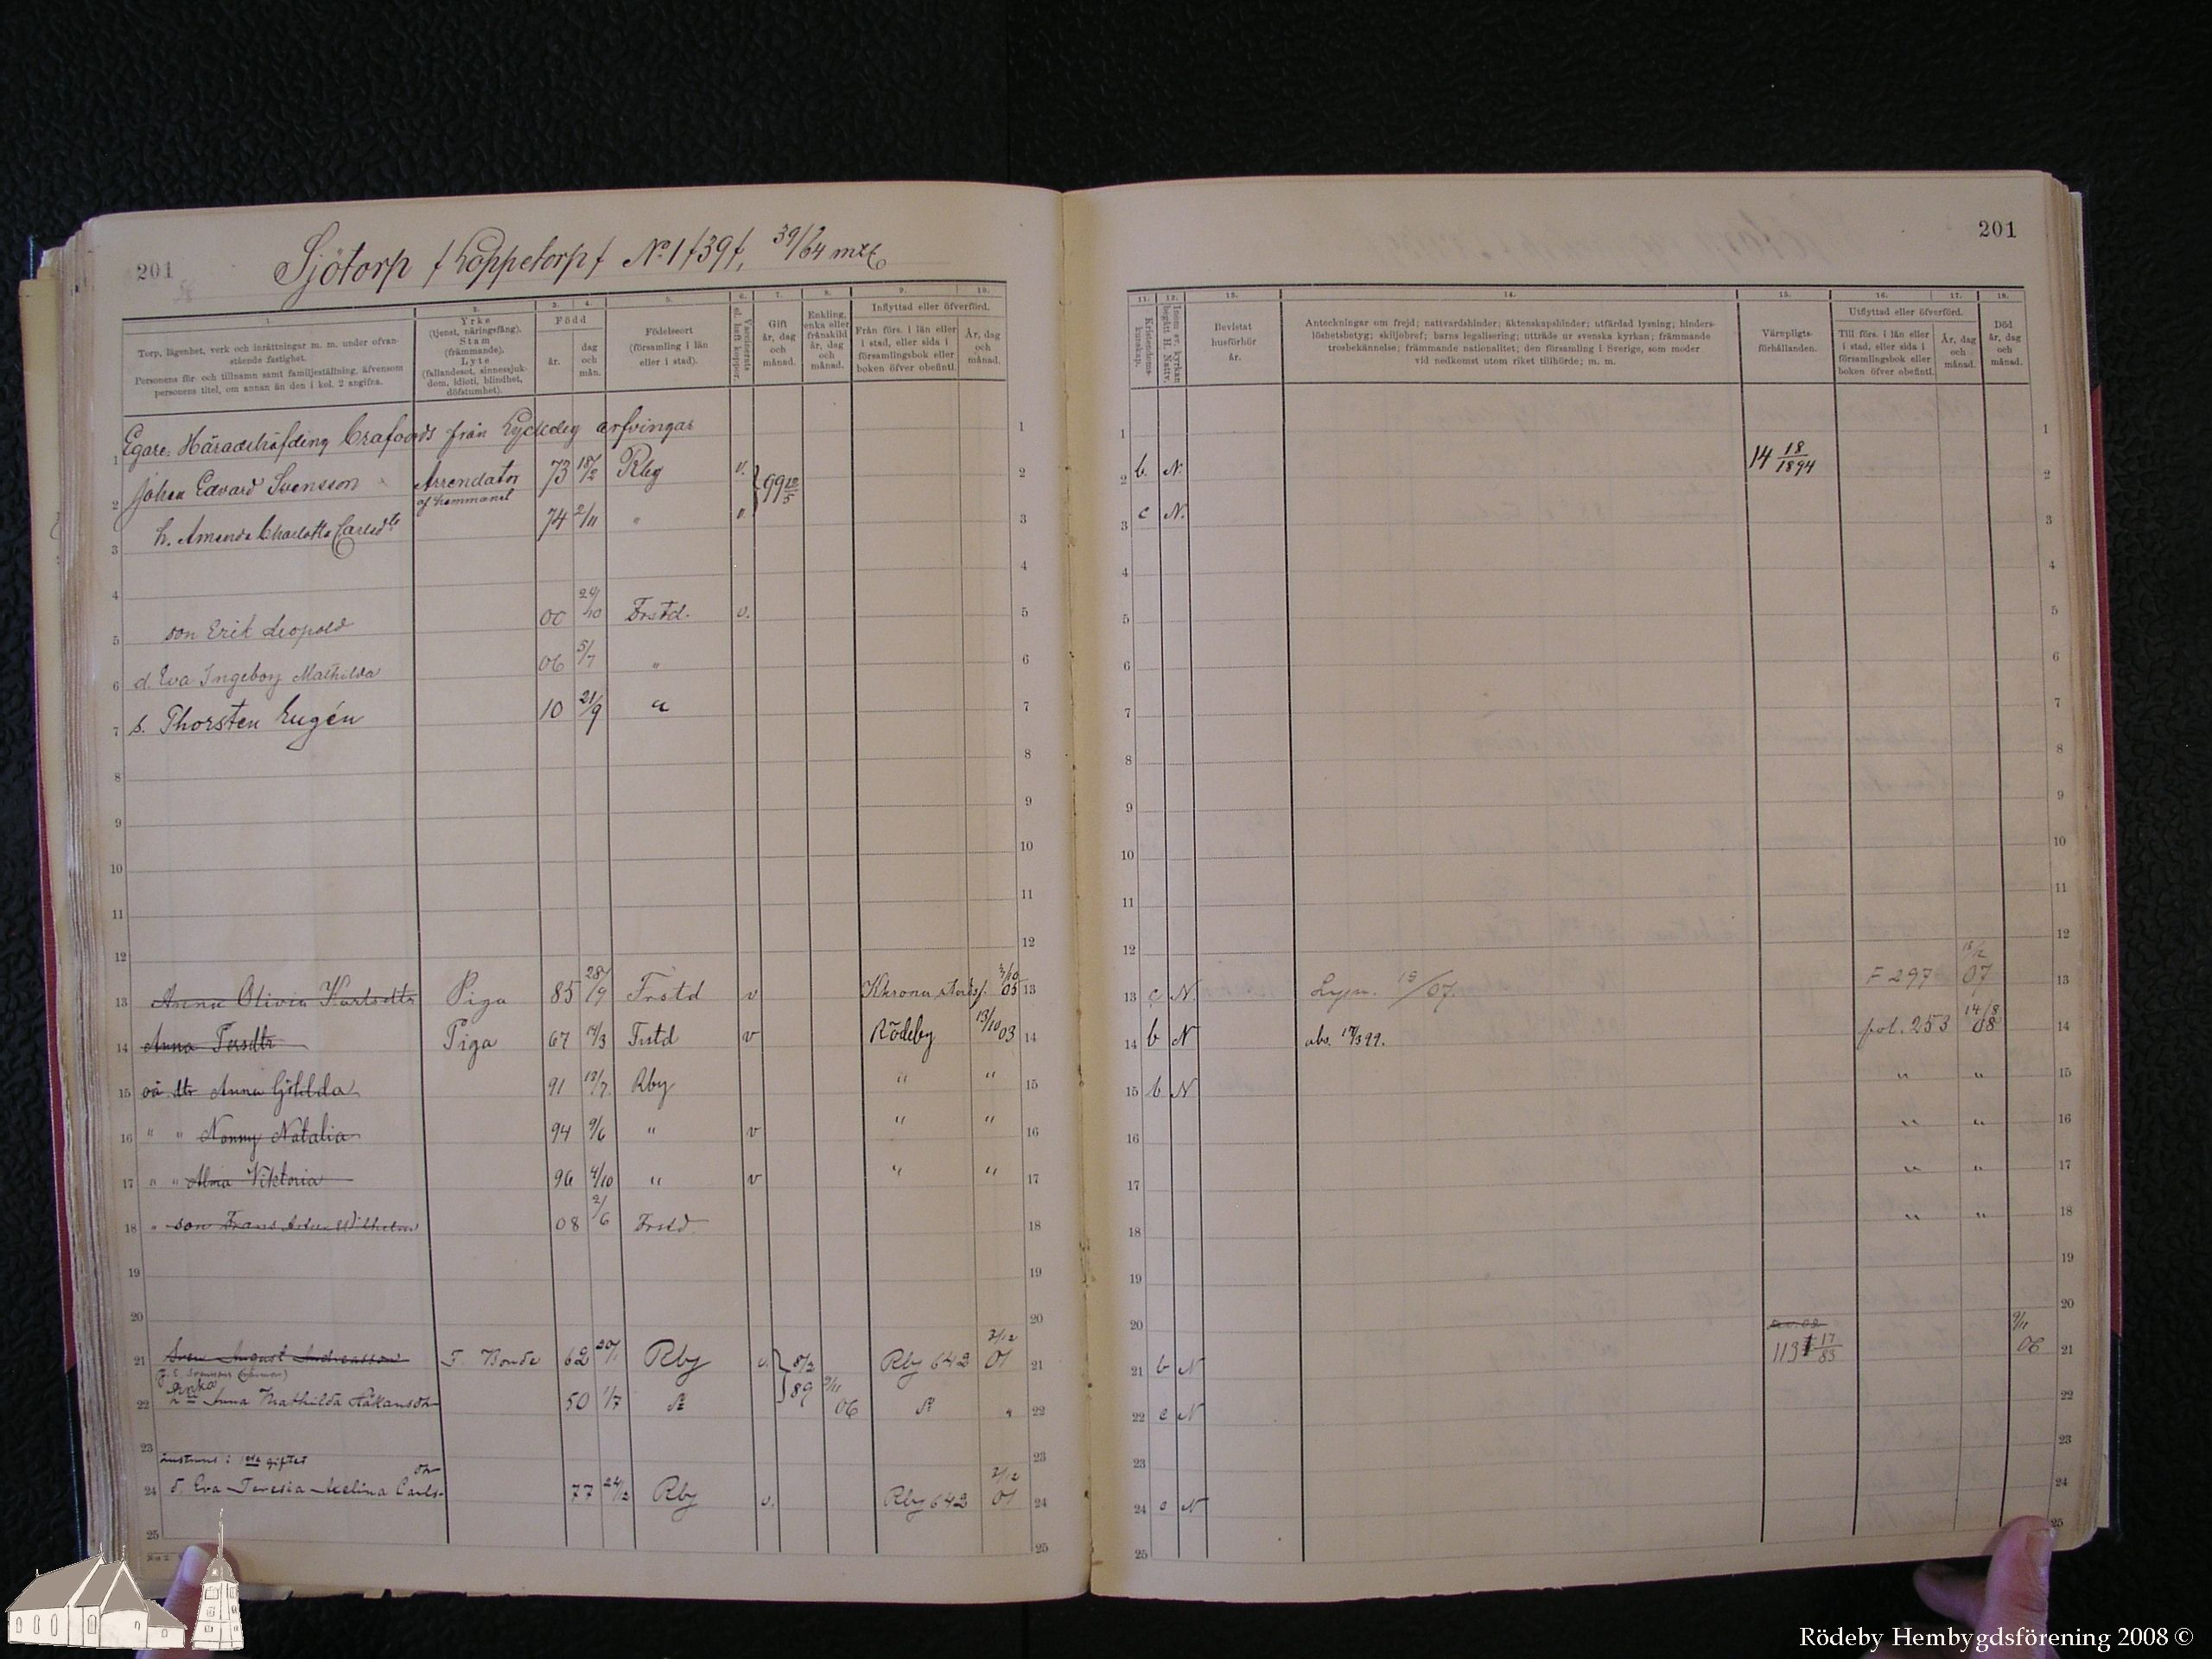 201
Sjötorp /Koppetorp/ No 1 /39/, 39/64 mtl
1. 2. 3. 4. 5. 6. 7. 8. 9. 10.
Torp, lägenhet, verk och inrättningar m. m. under ofvanstående fastighet.
Personens för- och tillnamn samt familjeställning, äfvensom personens titel, om annan än den i kol. 2 angifva.
Yrke
(tjenst, näringsfång).
Stam
(främmande).
Lyte
(fallandesot, sinnessjukdom, idioti, blindhet, döfstumhet).
Född
år.
dag och mån.
Födelseort
(församling i län eller i stad).
Vaccinerats el. haft koppor.
Gift år, dag och månad.
Enkling, enka eller frånskild år, dag och månad.
Inflyttad eller öfverförd.
Från förs. i län eller i stad, eller sida i församlingsbok eller boken öfver obefintl.
År, dag och månad.
Egare: Häradshöfding Crafoords från Lyckeby arfvingar
1
2 Johan Edvard Svensson Arrendator af hemmanet 73 18/2 Rby v. 99
3 h. Amanda Charlotta Carlsdtr 74 2/11 " v.
4
5 son Erik Leopold 00 Frstd. v.
6 d. Eva Ingeborg Mathilda 06 5/7 "
7 s. Thorsten Eugén 10 21/9 "
8
9
10
11
12
13 Anna Olivia Karlsdtr Piga 85 28/9 Frstd v 05
14 Anna Persdtr Piga 67 14/3 Frstd v Rödeby 13/10 03
15 oä. dtr Anna 91 Rby " "
16 " " Nanny Natalia 94 9/6 " v " "
17 " " Alma Viktoria 96 4/10 " v " "
18 " son Frans Wilhelm 08 2/6 Frstd
19
20
21 Sven August Andreasson F. Bonde 62 20/1 Rby v. 8/2 89 Rby 642 2/12 01
22 Enka Anna Mathilda Håkansdtr 50 1/7 9/11 06 "
23
hustruns i 1sta giftet
24 d. Eva Teresia Melina Carlsdtr 77 24/2 Rby v. Rby 642 2/12 01
25
201
11. 12. 13. 14. 15. 16. 17. 18.
Kristendomskunskap.
Inom sv. kyrkan begått H. Nattv.
Bevistat husförhör år.
Anteckningar om frejd; nattvardshinder; äktenskapshinder; utfärdad lysning; hinderslöshetsbetyg; skiljobref; barns legalisering; utträde ur svenska kyrkan; främmande trosbekännelse; främmande nationalitet; den församling i Sverige, som moder vid nedkomst utom riket tillhörde; m. m.
Värnpligtsförhållanden.
Utflyttad eller öfverförd.
Till förs. i län eller i stad, eller sida i församlingsbok eller boken öfver obefintl.
År, dag och månad.
Död år, dag och månad.
1
2 b. N. 14 18/1894
3 c N.
4
5
6
7
8
9
10
11
12
13 c N. Lysn. /07. F 297 /12 07
14 b N abs. 99. fol. 253 14/8 08
15 b N " "
16 " "
17 " "
18 " "
19
20
21 b N 113 17/83 9/11 06
22 c N
23
24 c N
25
Rödeby Hembygdsförening 2008 ©